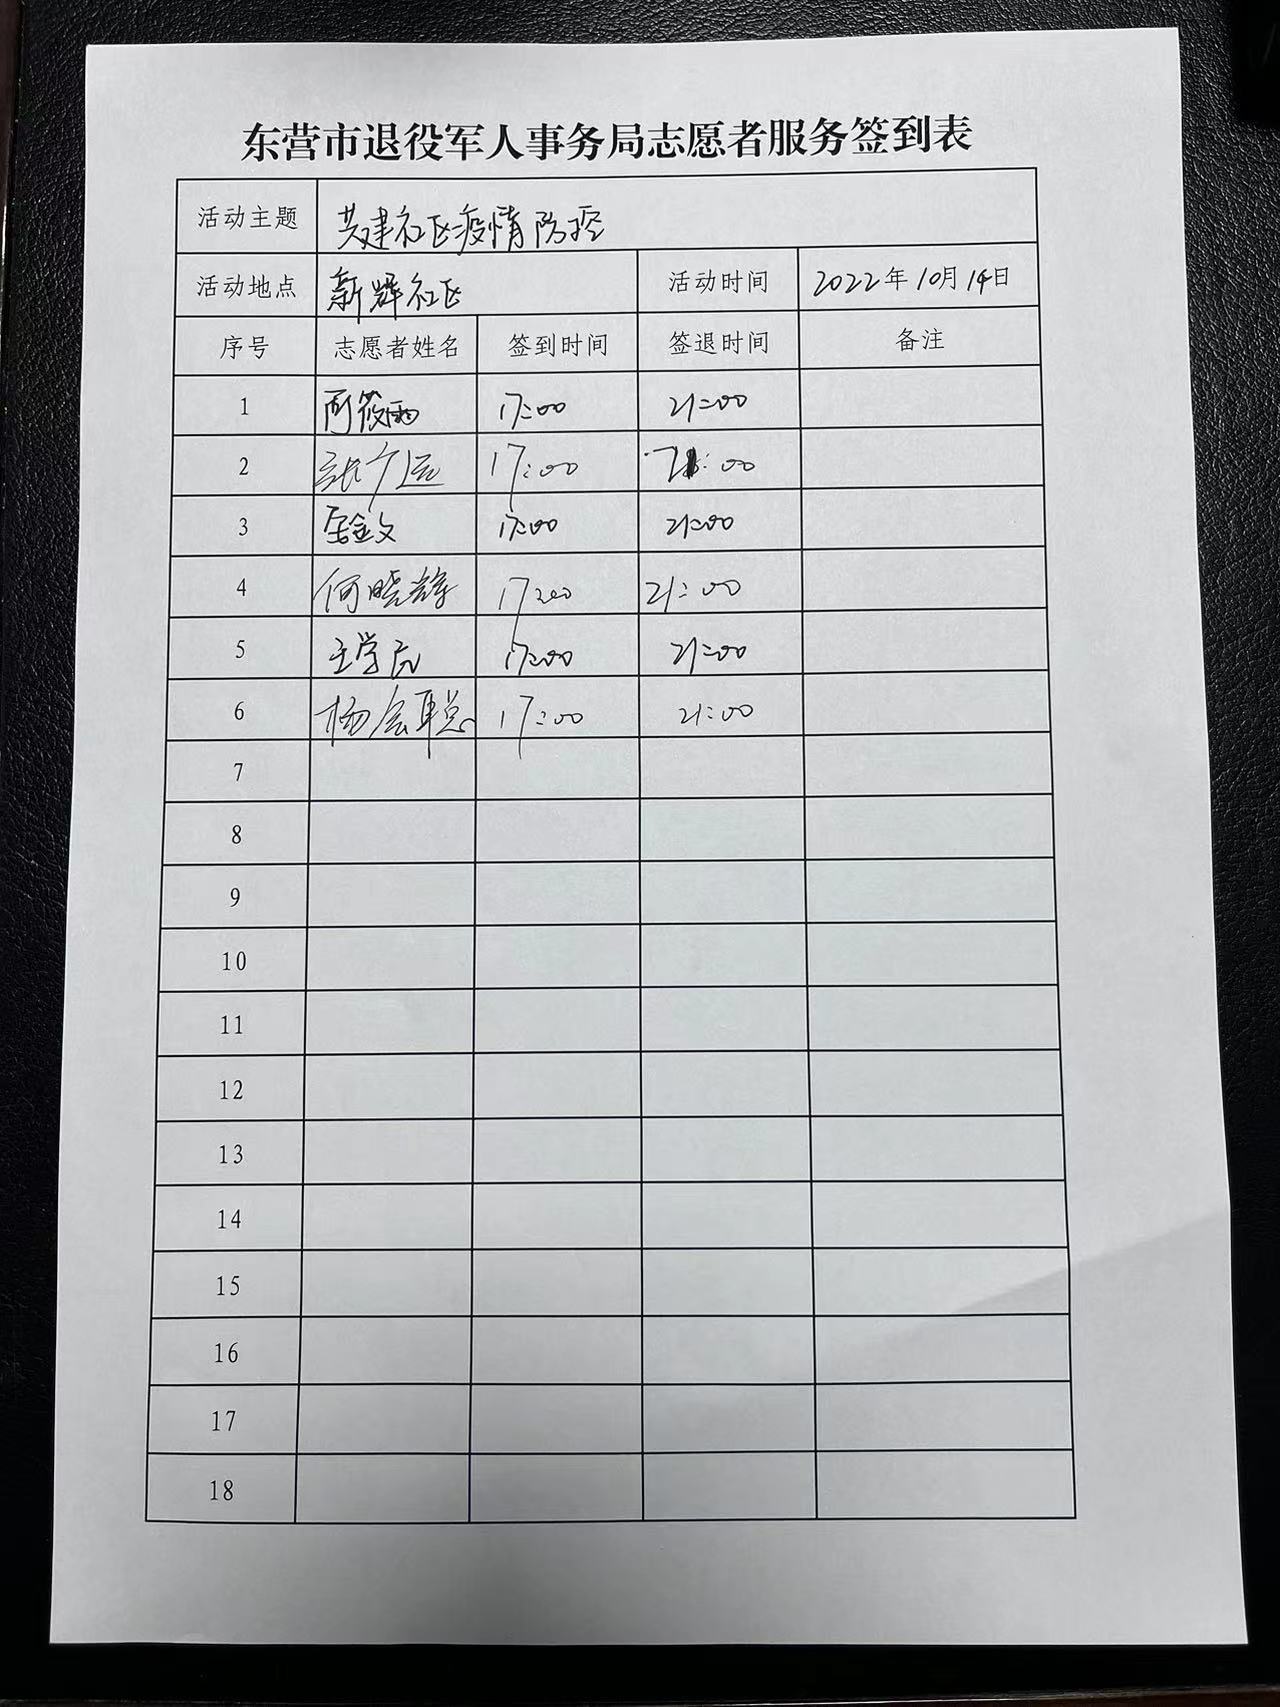 东营市退役军人事务局志愿者服务签到表
活动主题 共建社区疫情防控
活动地点 新辉社区 活动时间 2022年10月14日
序号 志愿者姓名 签到时间 签退时间 备注
1 筱雨 17:00 21:00
2 张广运 17:00 21:00
3 金文 17:00 21:00
4 何晓辉 17:00 21:00
5 王学 17:00 21:00
6 杨会聪 17:00 21:00
7
8
9
10
11
12
13
14
15
16
17
18